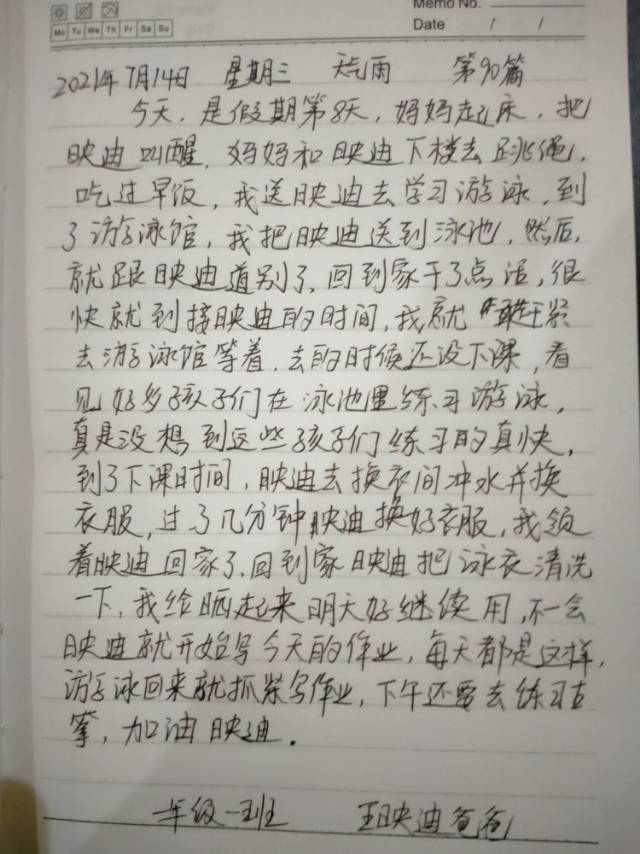 Memo No.
Mo Tu We Th Fr Sa Su
Date / /
2021年7月14日 星期三 天气雨 第90篇
今天,是假期第8天,妈妈起床,把
映迪叫醒,妈妈和映迪下楼去跳绳,
吃过早饭,我送映迪去学习游泳,到
了游泳馆,我把映迪送到泳池,然后,
就跟映迪道别了,回到家干了点活,很
快就到接映迪的时间,我就赶紧
去游泳馆等着,去的时候还没下课,看
见好多孩子们在泳池里练习游泳,
真是没想到这些孩子们练习的真快,
到了下课时间,映迪去换衣间冲水并换
衣服,过了几分钟映迪换好衣服,我领
着映迪回家了,回到家映迪把泳衣清洗
一下,我给晒起来明天好继续用,不一会
映迪就开始写今天的作业,每天都是这样,
游泳回来就抓紧写作业,下午还要去练习古
筝,加油映迪.
一年级一班 王映迪爸爸